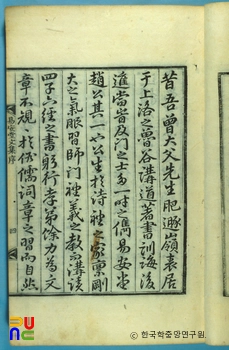 昔吾曾大父先生肥遯嶺表居
于上洛之魯谷講道著書訓誨後
進當當及門之士多一時之儁易安堂
趙公其一也公生於詩禮之家稟剛
大之氣服習師門禮義之敎而講讀
四子六經之書躬行孝弟餘力爲文
章不規於俗儒詞章之習而自然
易安堂文集序
한국학중앙연구원